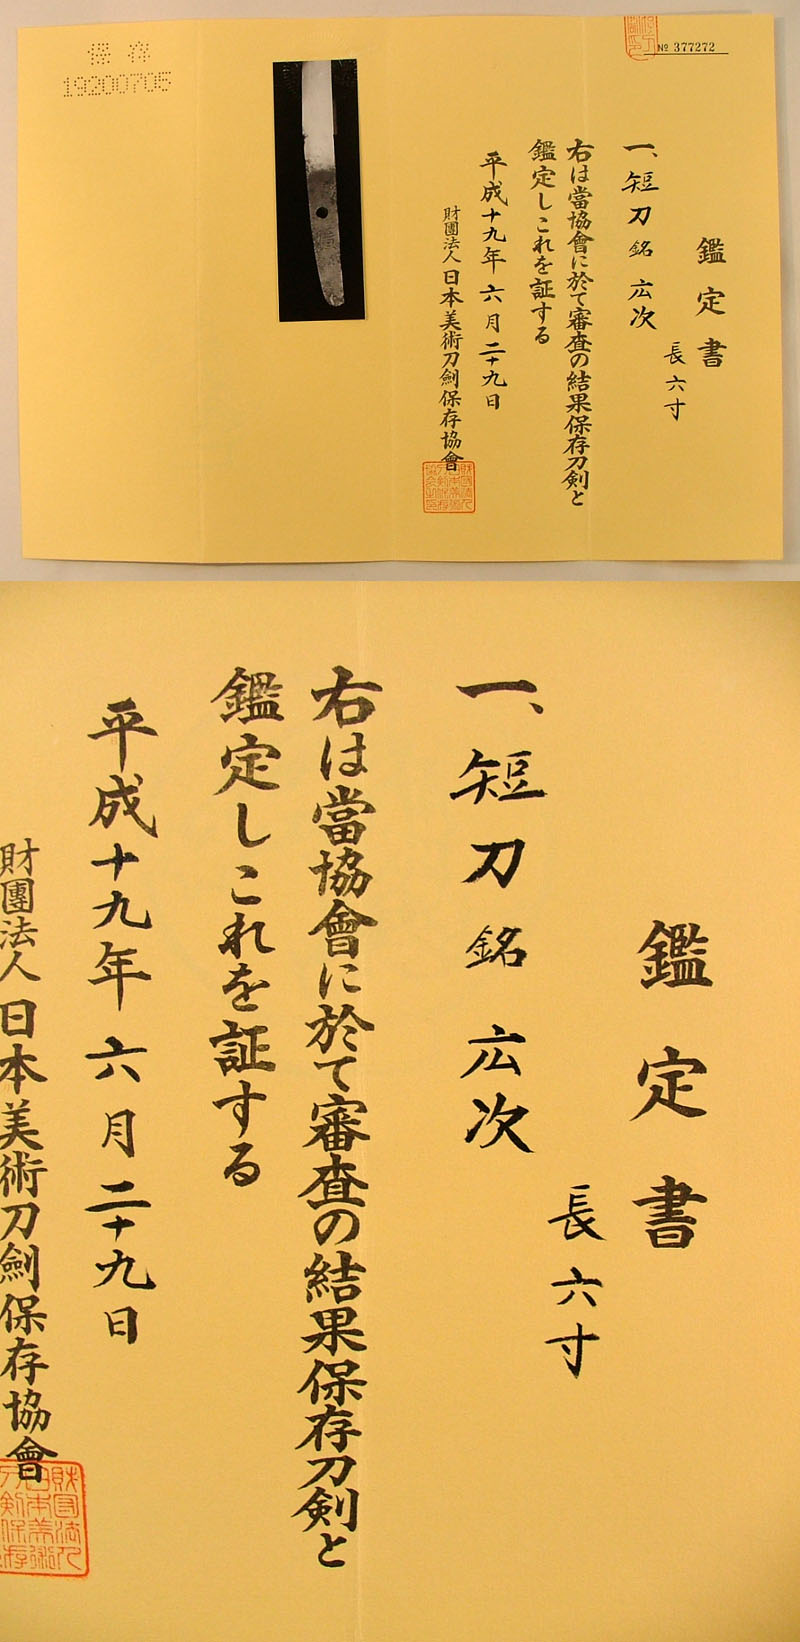 № 377272
鑑定書
一、短刀 銘 広次
長六寸
右は當協會に於て審査の結果保存刀剣と
鑑定しこれを証する
平成十九年六月二十九日
財團法人日本美術刀劍保存協會
保存
19200705
鑑定書
一、短刀 銘 広次
長六寸
右は當協會に於て審査の結果保存刀剣と
鑑定しこれを証する
平成十九年六月二十九日
財團法人日本美術刀劍保存協會